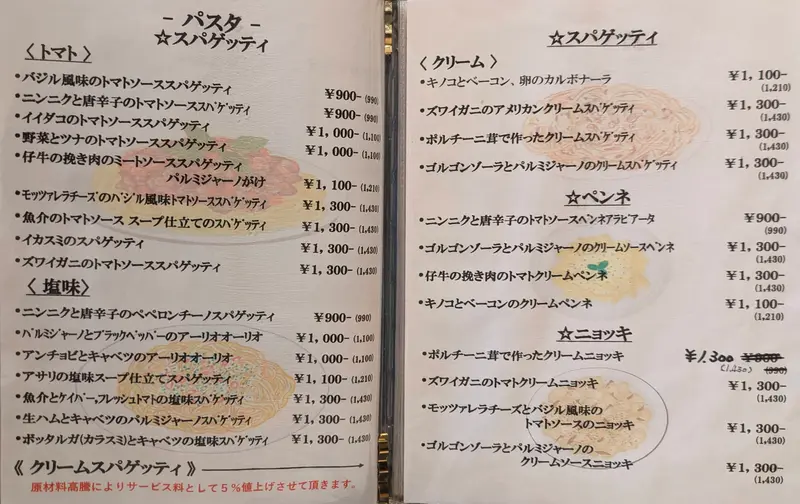 - パスタ -
☆スパゲッティ
〈トマト〉
・バジル風味のトマトソーススパゲッティ ￥900- (990)
・ニンニクと唐辛子のトマトソーススパゲッティ ￥900- (990)
・イイダコのトマトソーススパゲッティ ￥1,000- (1,100)
・野菜とツナのトマトソーススパゲッティ ￥1,000- (1,100)
・仔牛の挽き肉のミートソーススパゲッティ
パルミジャーノがけ ￥1,100- (1,210)
・モッツァレラチーズのバジル風味トマトソーススパゲッティ ￥1,300- (1,430)
・魚介のトマトソース スープ仕立てのスパゲッティ ￥1,300- (1,430)
・イカスミのスパゲッティ ￥1,300- (1,430)
・ズワイガニのトマトソーススパゲッティ ￥1,300- (1,430)
〈塩味〉
・ニンニクと唐辛子のペペロンチーノスパゲッティ ￥900- (990)
・パルミジャーノとブラックペッパーのアーリオオーリオ ￥1,000- (1,100)
・アンチョビとキャベツのアーリオオーリオ ￥1,000- (1,100)
・アサリの塩味スープ仕立てスパゲッティ ￥1,100- (1,210)
・魚介とケイパー,フレッシュトマトの塩味スパゲッティ ￥1,300- (1,430)
・生ハムとキャベツのパルミジャーノスパゲッティ ￥1,300- (1,430)
・ボッタルガ(カラスミ)とキャベツの塩味スパゲッティ ￥1,300- (1,430)
《クリームスパゲッティ》
原材料高騰によりサービス料として５％値上げさせて頂きます。
☆スパゲッティ
〈クリーム〉
・キノコとベーコン、卵のカルボナーラ ￥1,100- (1,210)
・ズワイガニのアメリカンクリームスパゲッティ ￥1,300- (1,430)
・ポルチーニ茸で作ったクリームスパゲッティ ￥1,300- (1,430)
・ゴルゴンゾーラとパルミジャーノのクリームスパゲッティ ￥1,300- (1,430)
☆ペンネ
・ニンニクと唐辛子のトマトソースペンネアラビアータ ￥900- (990)
・ゴルゴンゾーラとパルミジャーノのクリームソースペンネ ￥1,300- (1,430)
・仔牛の挽き肉のトマトクリームペンネ ￥1,300- (1,430)
・キノコとベーコンのクリームペンネ ￥1,100- (1,210)
☆ニョッキ
・ポルチーニ茸で作ったクリームニョッキ ￥1,300 ￥900- (1,430) (990)
・ズワイガニのトマトクリームニョッキ ￥1,300- (1,430)
・モッツァレラチーズとバジル風味の
トマトソースのニョッキ ￥1,300- (1,430)
・ゴルゴンゾーラとパルミジャーノの
クリームソースニョッキ ￥1,300- (1,430)